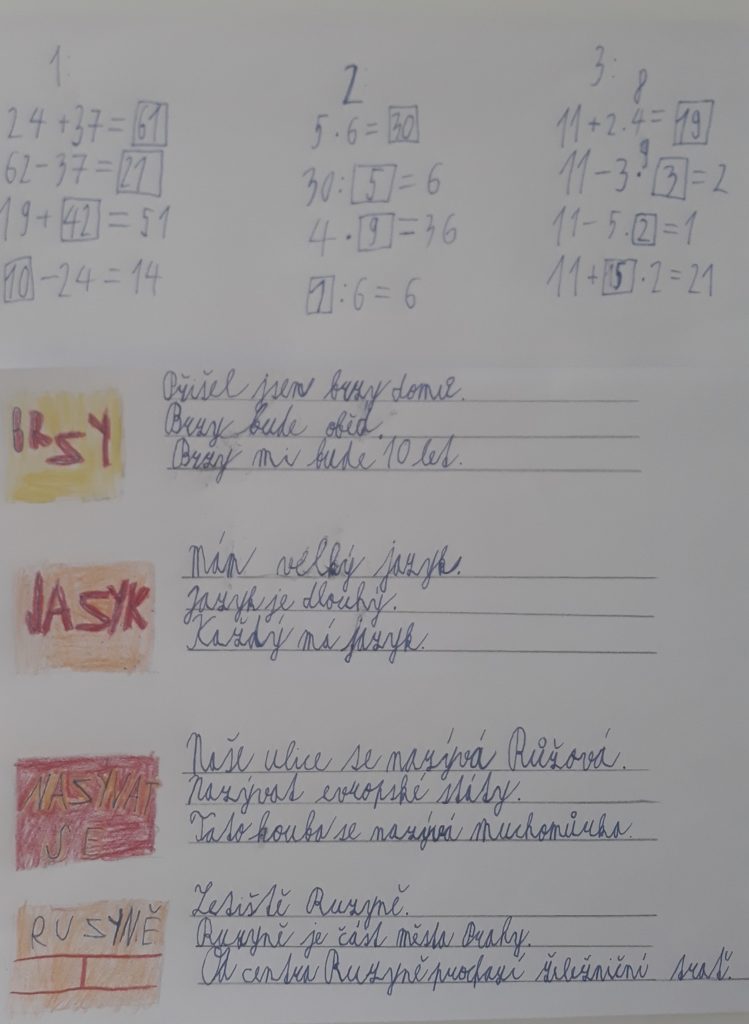 1:
24+37=61
62-37=21
19+42=51
10-24=14
2
5·6=30
30:5=6
4·9=36
1:6=6
3:
8
11+2·4=19
9
11-3·3=2
11-5·2=1
11+15·2=21
BRSY
Přišel jsem brzy domů.
Brzy bude oběd.
Brzy mi bude 10 let.
JASYK
Mám velký jazyk.
Jazyk je dlouhý.
Každý má jazyk.
NASYVAT
SE
Naše ulice se nazývá Růžová.
Nazývat evropské státy.
Tato houba se nazývá muchomůrka.
RUSYNĚ
Letiště Ruzyně.
Ruzyně je část města Prahy.
Od centra Ruzyně prochazí železniční trať.